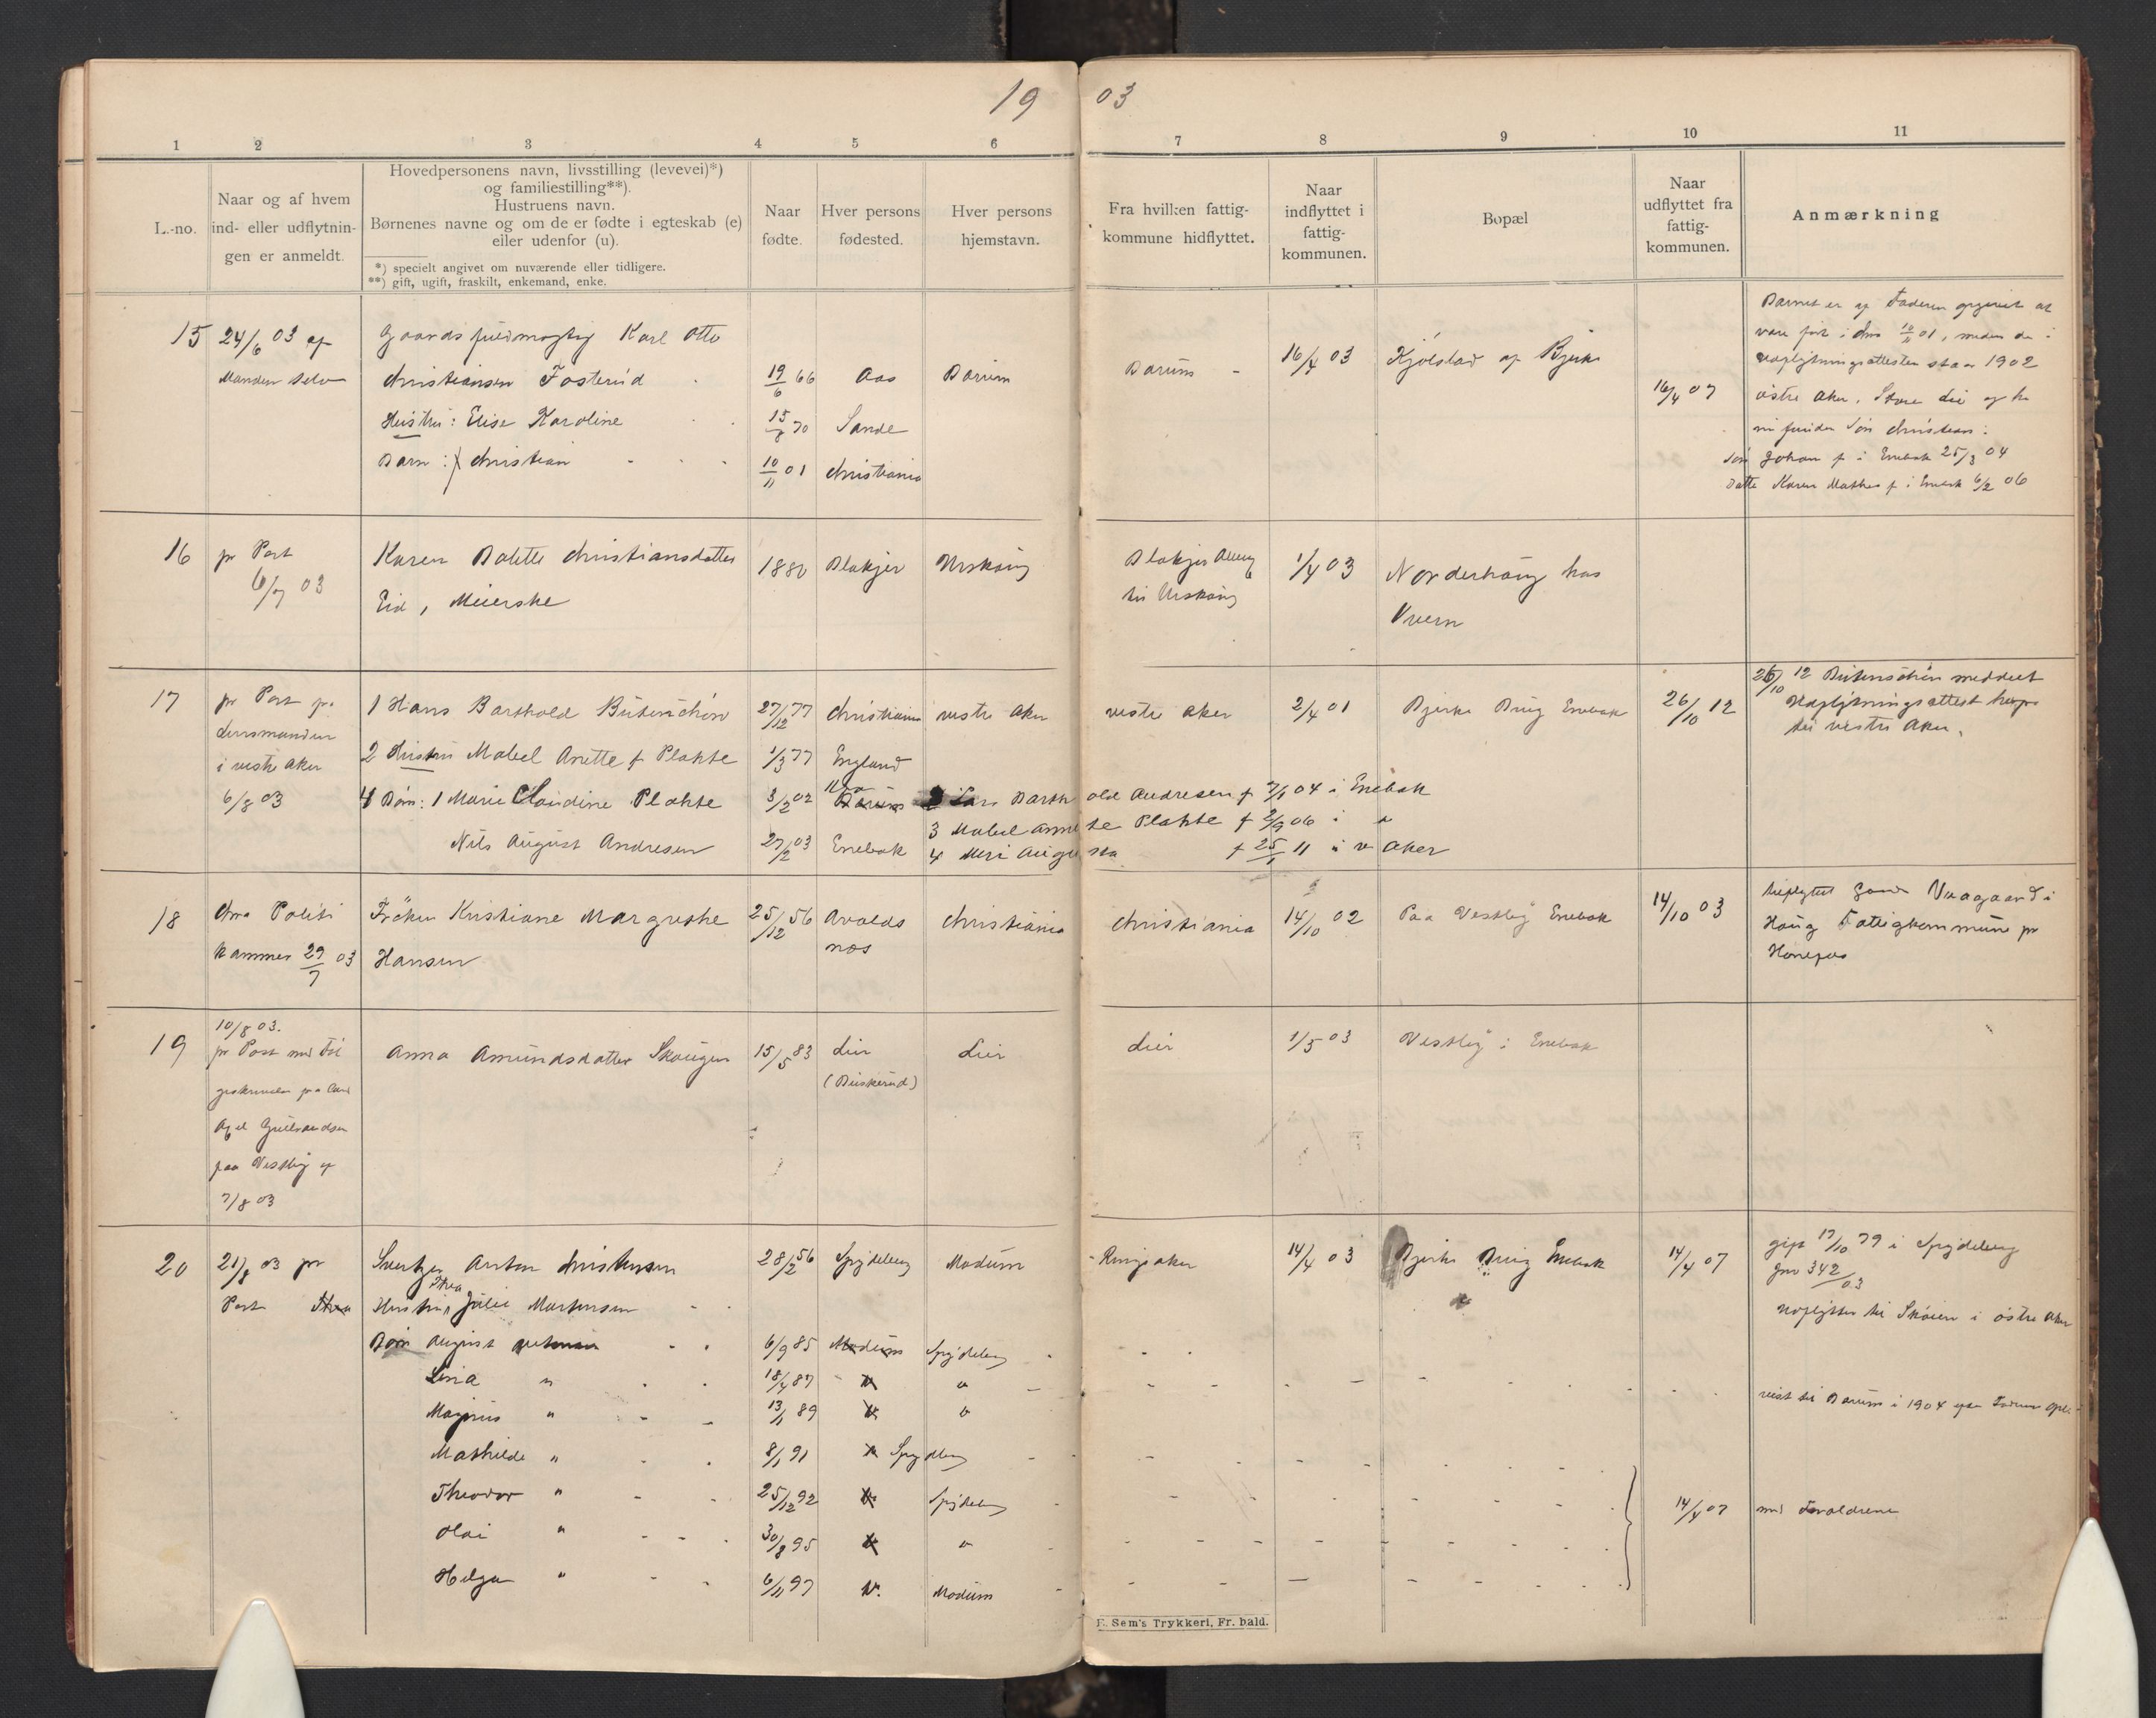 19 03
1 2 3 4 5 6 7 8 9 10 11
L.-no.
Naar og af hvem
ind- eller udflytnin-
gen er anmeldt.
Hovedpersonens navn, livsstilling (levevei)*)
og familiestilling**).
Hustruens navn.
Børnenes navne og om de er fødte i egteskab (e)
eller udenfor (u).
*) specielt angivet om nuværende eller tidligere.
**) gift, ugift, fraskilt, enkemand, enke.
Naar
fødte.
Hver persons
fødested.
Hver persons
hjemstavn.
Fra hvilken fattig-
kommune hidflyttet.
Naar
indflyttet i
fattig-
kommunen.
Bopæl
Naar
udflyttet fra
fattig-
kommunen.
Anmærkning
15 24/6 03 af
Manden selv
Gaardsfuldmægtig Karl Otto
Christiansen Fosterud 19/6 66 Aas Bærum
Hustru: Elise Karoline 15/8 70 Sande
Barn: Christian 10/11 01 Christiania
Bærum 16/4 03 Kjølstad af Bjerke 16/4 07
Barnet er af Faderen opgivet at
være født i Chra 10/11 01, meden de i
Udflytningsattesten staar 1902
østre Aker.
Søn Johan f i Enebak 25/3 04
Datter Karen Mathea f i Enebak 6/2 06
16 pr Post
6/7 03
Karen Dolette Christiansdatter
Eid, Meierske
1880 Blakjer Urskoug
Blakjer
til Urskoug
1/4 03
Norderhaug hos
Kvern
17 pr Post fra
Lensmanden
i vestre Aker
6/8 03
1 Hans Barthold Butenschøn 27/12 77 Christiania vestre Aker
2 Hustru Mabel Anette f Plahte 1/3 77 England
4 Børn: 1 Marie Claudine Plahte 3/2 02 Bærum
Nils August Andresen 27/2 03 Enebak
Lars Barthold Andresen f 7/1 04 i Enebak
3 Mabel Annette Plahte f 2/9 06 i "
4 Meri Augusta f 25/1 11 i v Aker
vestre Aker 2/4 01 Bjerke Brug Enebak 26/10 12
26/10 12 Butenschøn meddelt
Udflytningsattest herfra
til vestre Aker.
18 Chra Politi
kammer 29/7 03
Frøken Kristiane Margrethe
Hansen
25/12 56 Avalds
næs
Christiania
Christiania 14/10 02 Paa Vestby Enebak 14/10 03
Haug Fattigkommune pr
Hønefos
19 10/8 03.
pr Post med Føl
geskrivelse fra
Axel Gulbrandsen
paa Vestby af
7/8 03
Anna Amundsdatter Skougen 15/5 83 Lier
(Buskerud)
Lier
Lier 1/5 03 Vestby i Enebak
20 21/8 03 pr
Post
Sveitzer Anton Christensen 28/2 56 Spydeberg Modum
Thea
Hustru Julie Mortensen
Børn August 6/9 85 Modum Spydeberg
Lina " 18/4 87 " "
Magnus " 13/1 89 " "
Mathilde " 8/1 91 " Spydeberg
Theodor " 25/12 92 " Spydeberg
Olai " 30/8 95 " "
Helga " 6/11 97 " Modum
Ringsaker 14/4 03 Bjerke Brug Enebak 14/4 07
gift 17/10 79 i Spydeberg
Jnr 342/03
Udflyttet til Skøien i østre Aker
reist til Bærum i 1904
14/4 07 med Forældrene
E. Sem's Trykkeri, Fr. hald.